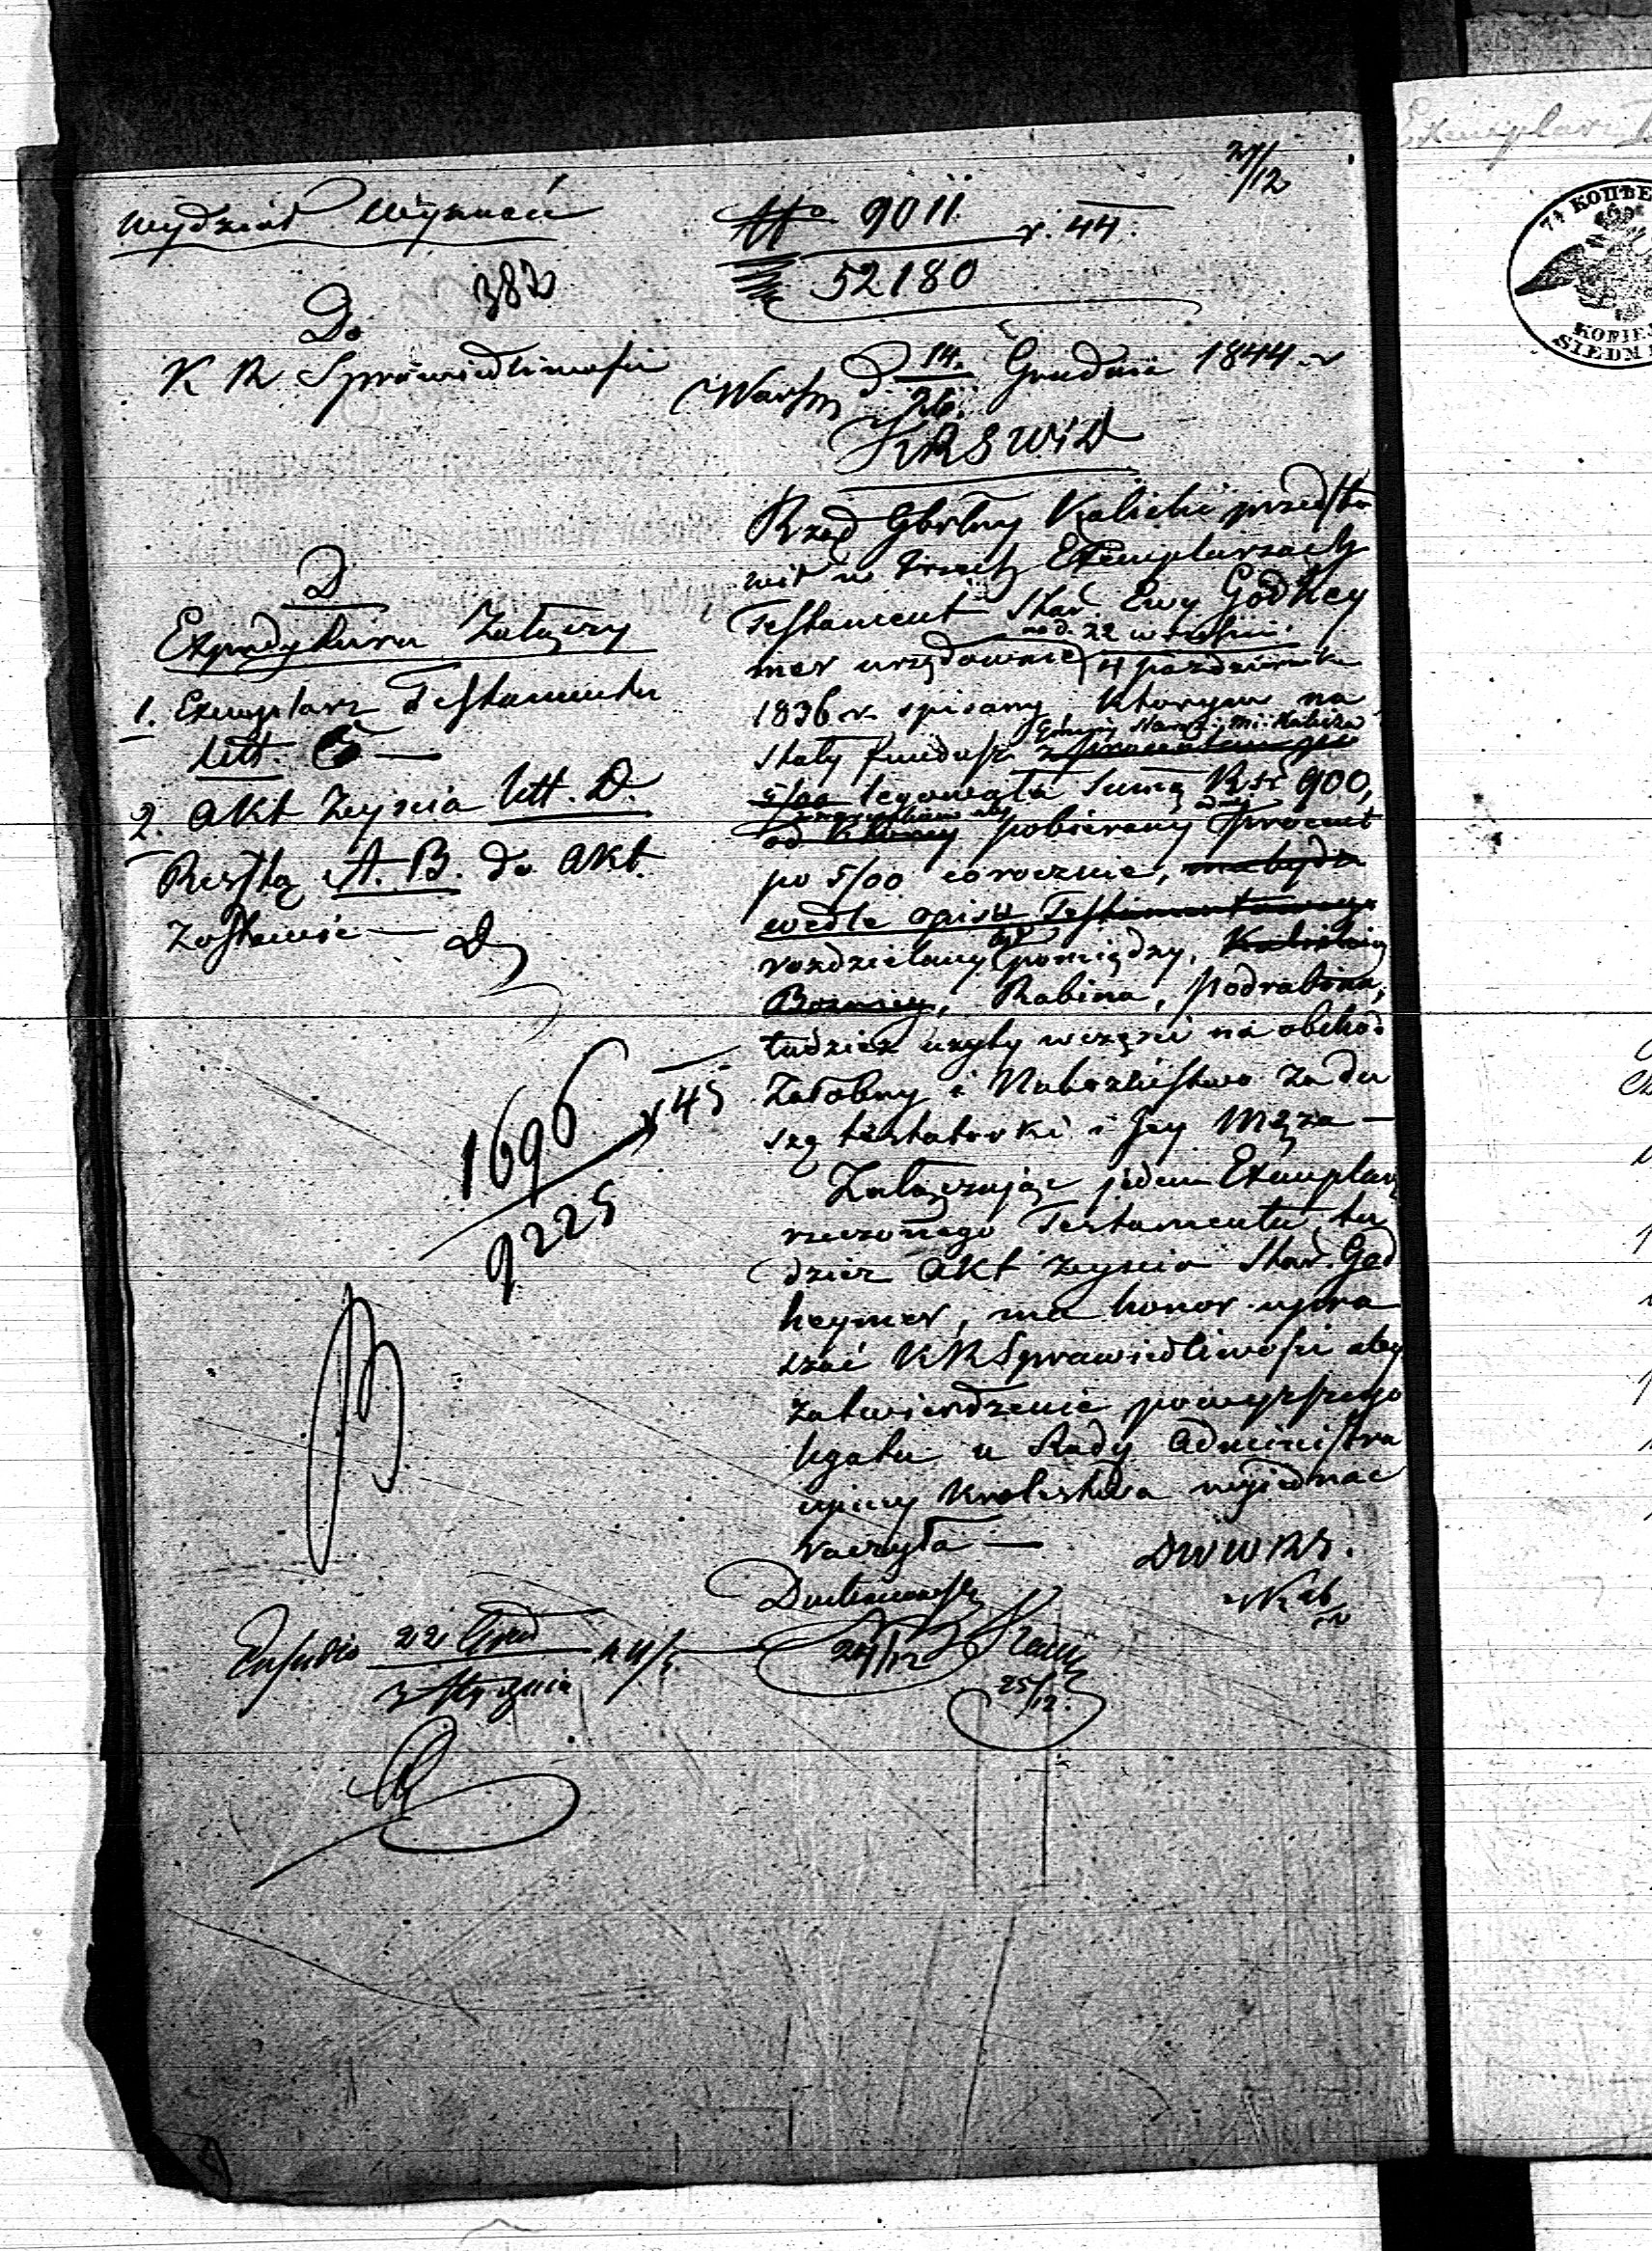 27/12
Wydział Wyznań
No 9011 r. 44.
52180
382
Do
K R Sprawiedliwości
Warsz d 14./26. Grudnia 1844 r
KRSWiD
Rząd Gbrlny Kaliski przedsta
wił w trzech Exemplarzach
Testament Star. Ewy Godhey
mer urzędownie na d. 22 września / 4 Października
1836 r. spisany, którym na
stały fundusz Gminy Starz: m: Kalisza
5/00 legowała Sumę Rsr 900,
od której pobierany procent
po 5/00 corocznie, ma bydź
wedle opisu Testamentowego
rozdzielany był pomiędzy,
Boznicy, Rabina, Podrabina,
tudzież użyty w części na obchod
Żałobny i Nabożeństwo za du
szę testatorki i Jey Męża —
Załączając jeden Exemplarz
rzeczonego Testamentu, tu
dzież Akt zeyscia Star. God
heymer, ma honor upra
szać KRSprawiedliwości aby
zatwierdzenie powyższego
legatu u Rady Administra
cyiney Krolestwa wyjednac
raczyła —
DWWRS.
24/12
25/12.
D
Expedytura Załączy
1. Exemplarz Testamentu
litt. C —
2. Akt Zeyscia litt. D.
Resztę A. B. do Akt.
Zostawić —
1696 r 45
9225
22 Grud
3 Stycznia